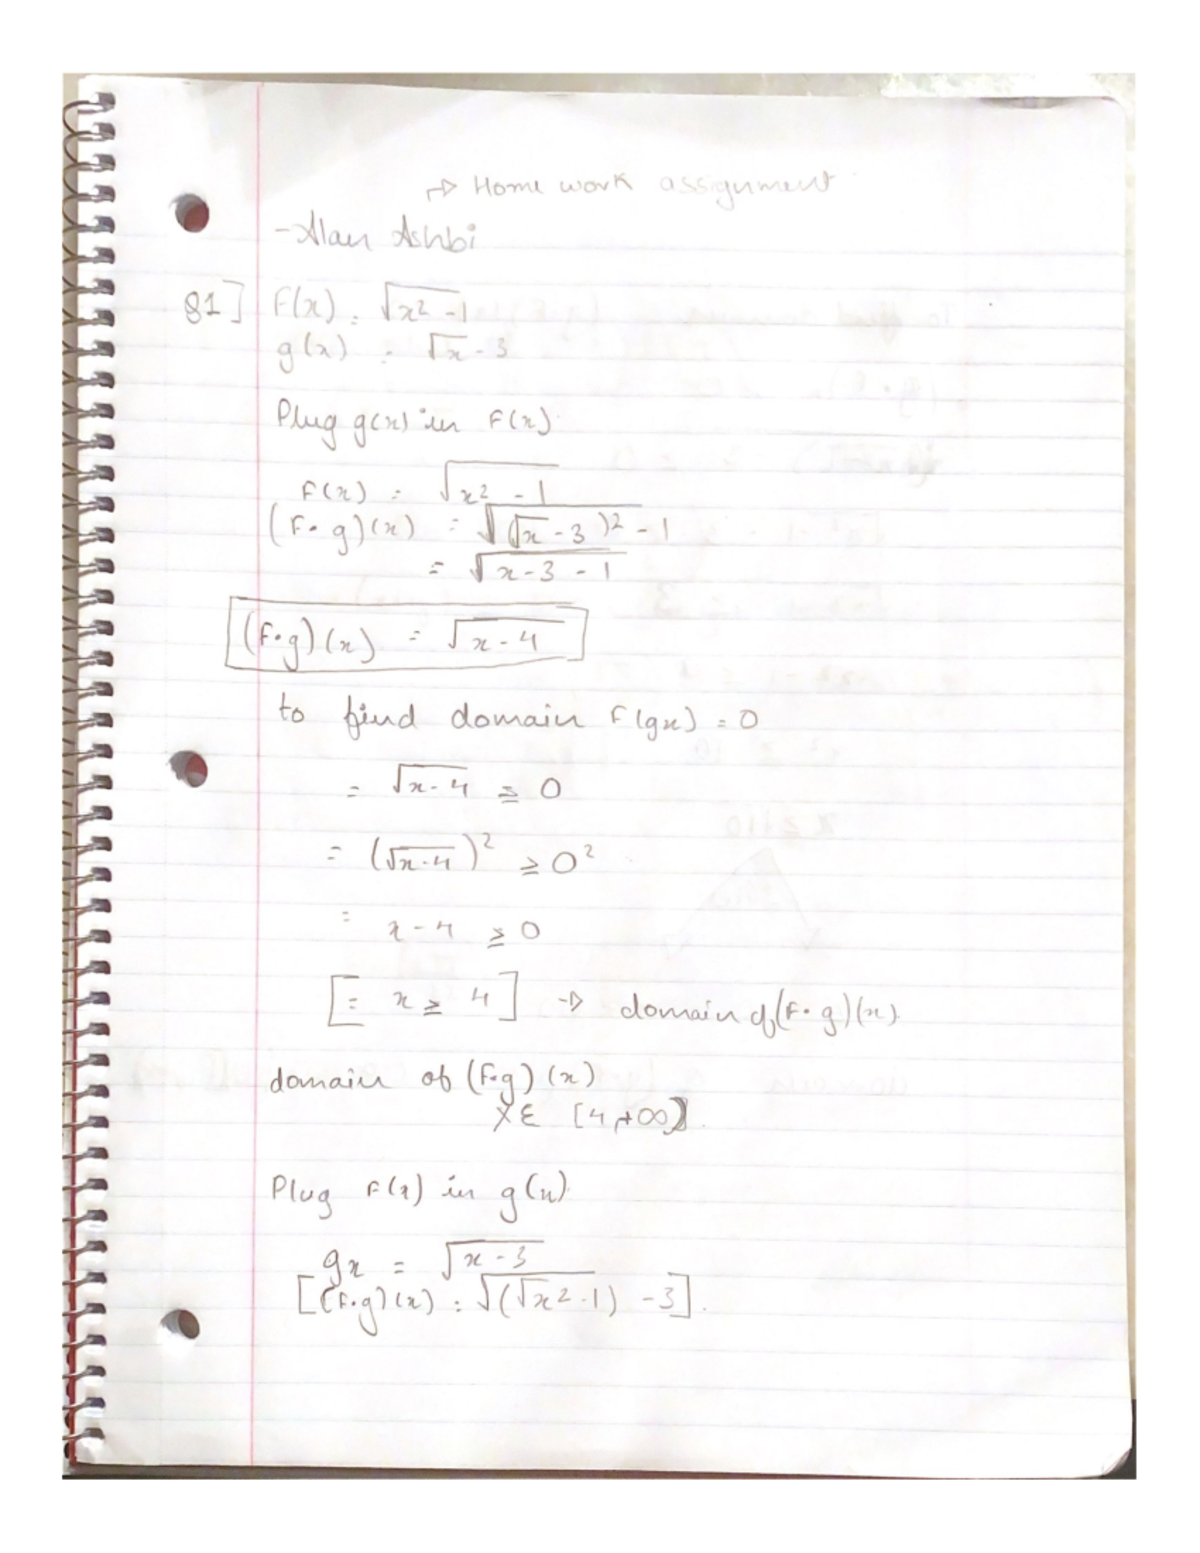 → Home work assignment
- Alan Ashbi
81] F(x) = √x² - 1
g(x) = √x - 3
Plug g(x) in F(x).
F(x) = √x² - 1
(F∘g)(x) = √(√x - 3)² - 1
= √x - 3 - 1
(F∘g)(x) = √x - 4
to find domain F(gx) = 0
= √x - 4 ≥ 0
= (√x - 4)² ≥ 0²
= x - 4 ≥ 0
[= x ≥ 4] → domain of (F∘g)(x).
domain of (F∘g)(x)
X ε [4, +∞).
Plug F(x) in g(x).
gx = √x - 3
[(F∘g)(x) = √(√x² - 1) - 3].